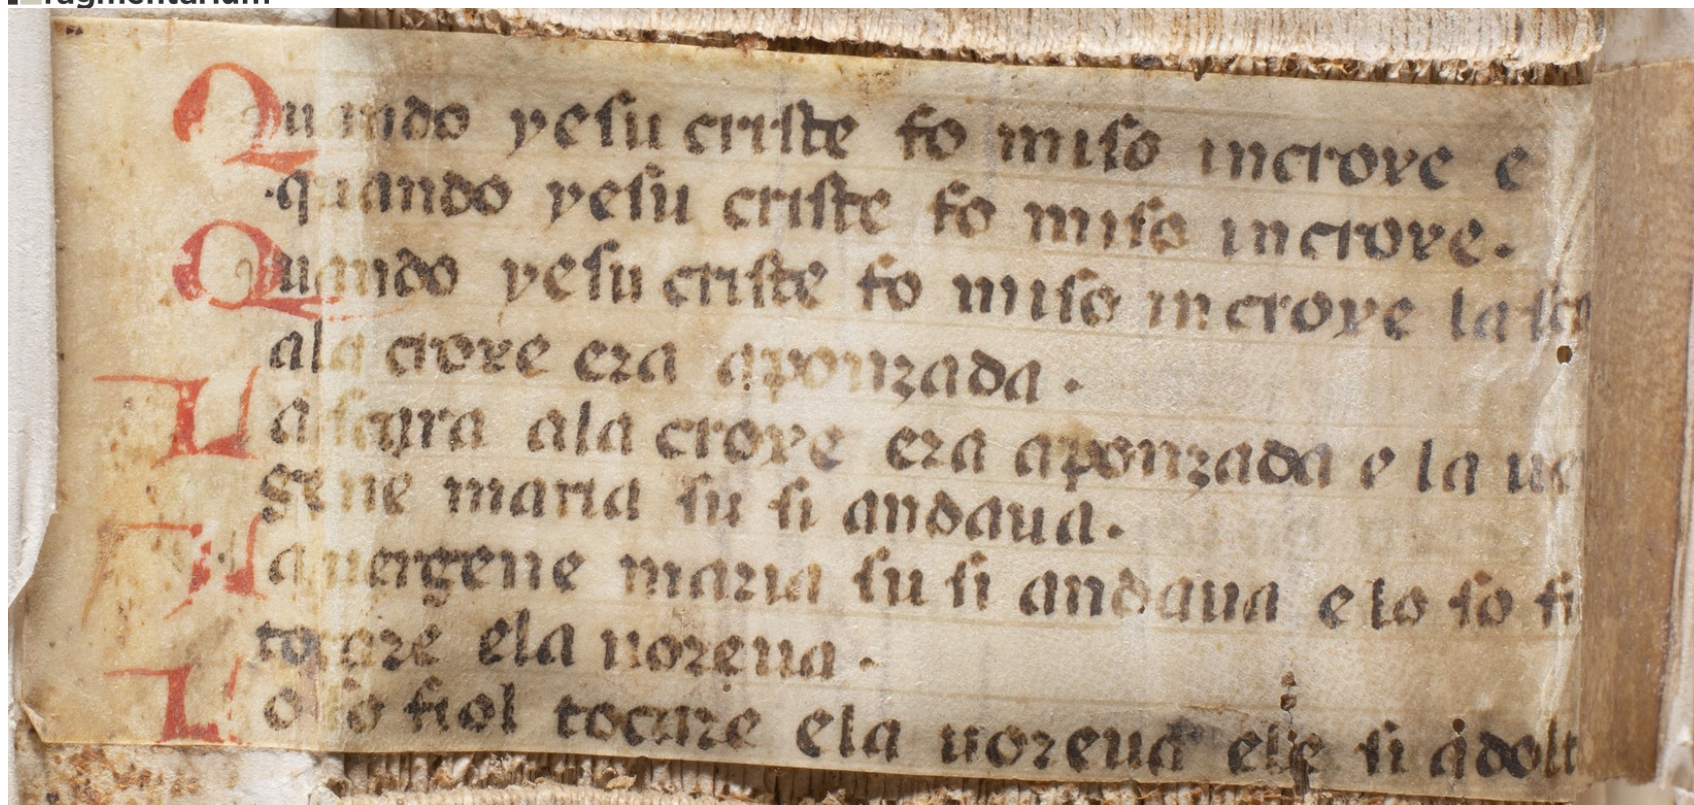 fragmentarium
Quando yesu criste fo miso in croxe e
quando yesu criste fo miso in croxe.
Quando yesu criste fo miso in croxe la sca
ala croxe era aponzada.
La scgra ala croxe era aponzada e la ue
gene maria su si andaua.
La uergene maria su si andaua e lo so fi
tocare ela uoreua.
Lo so fiol tocare ela uoreua ele si adolt